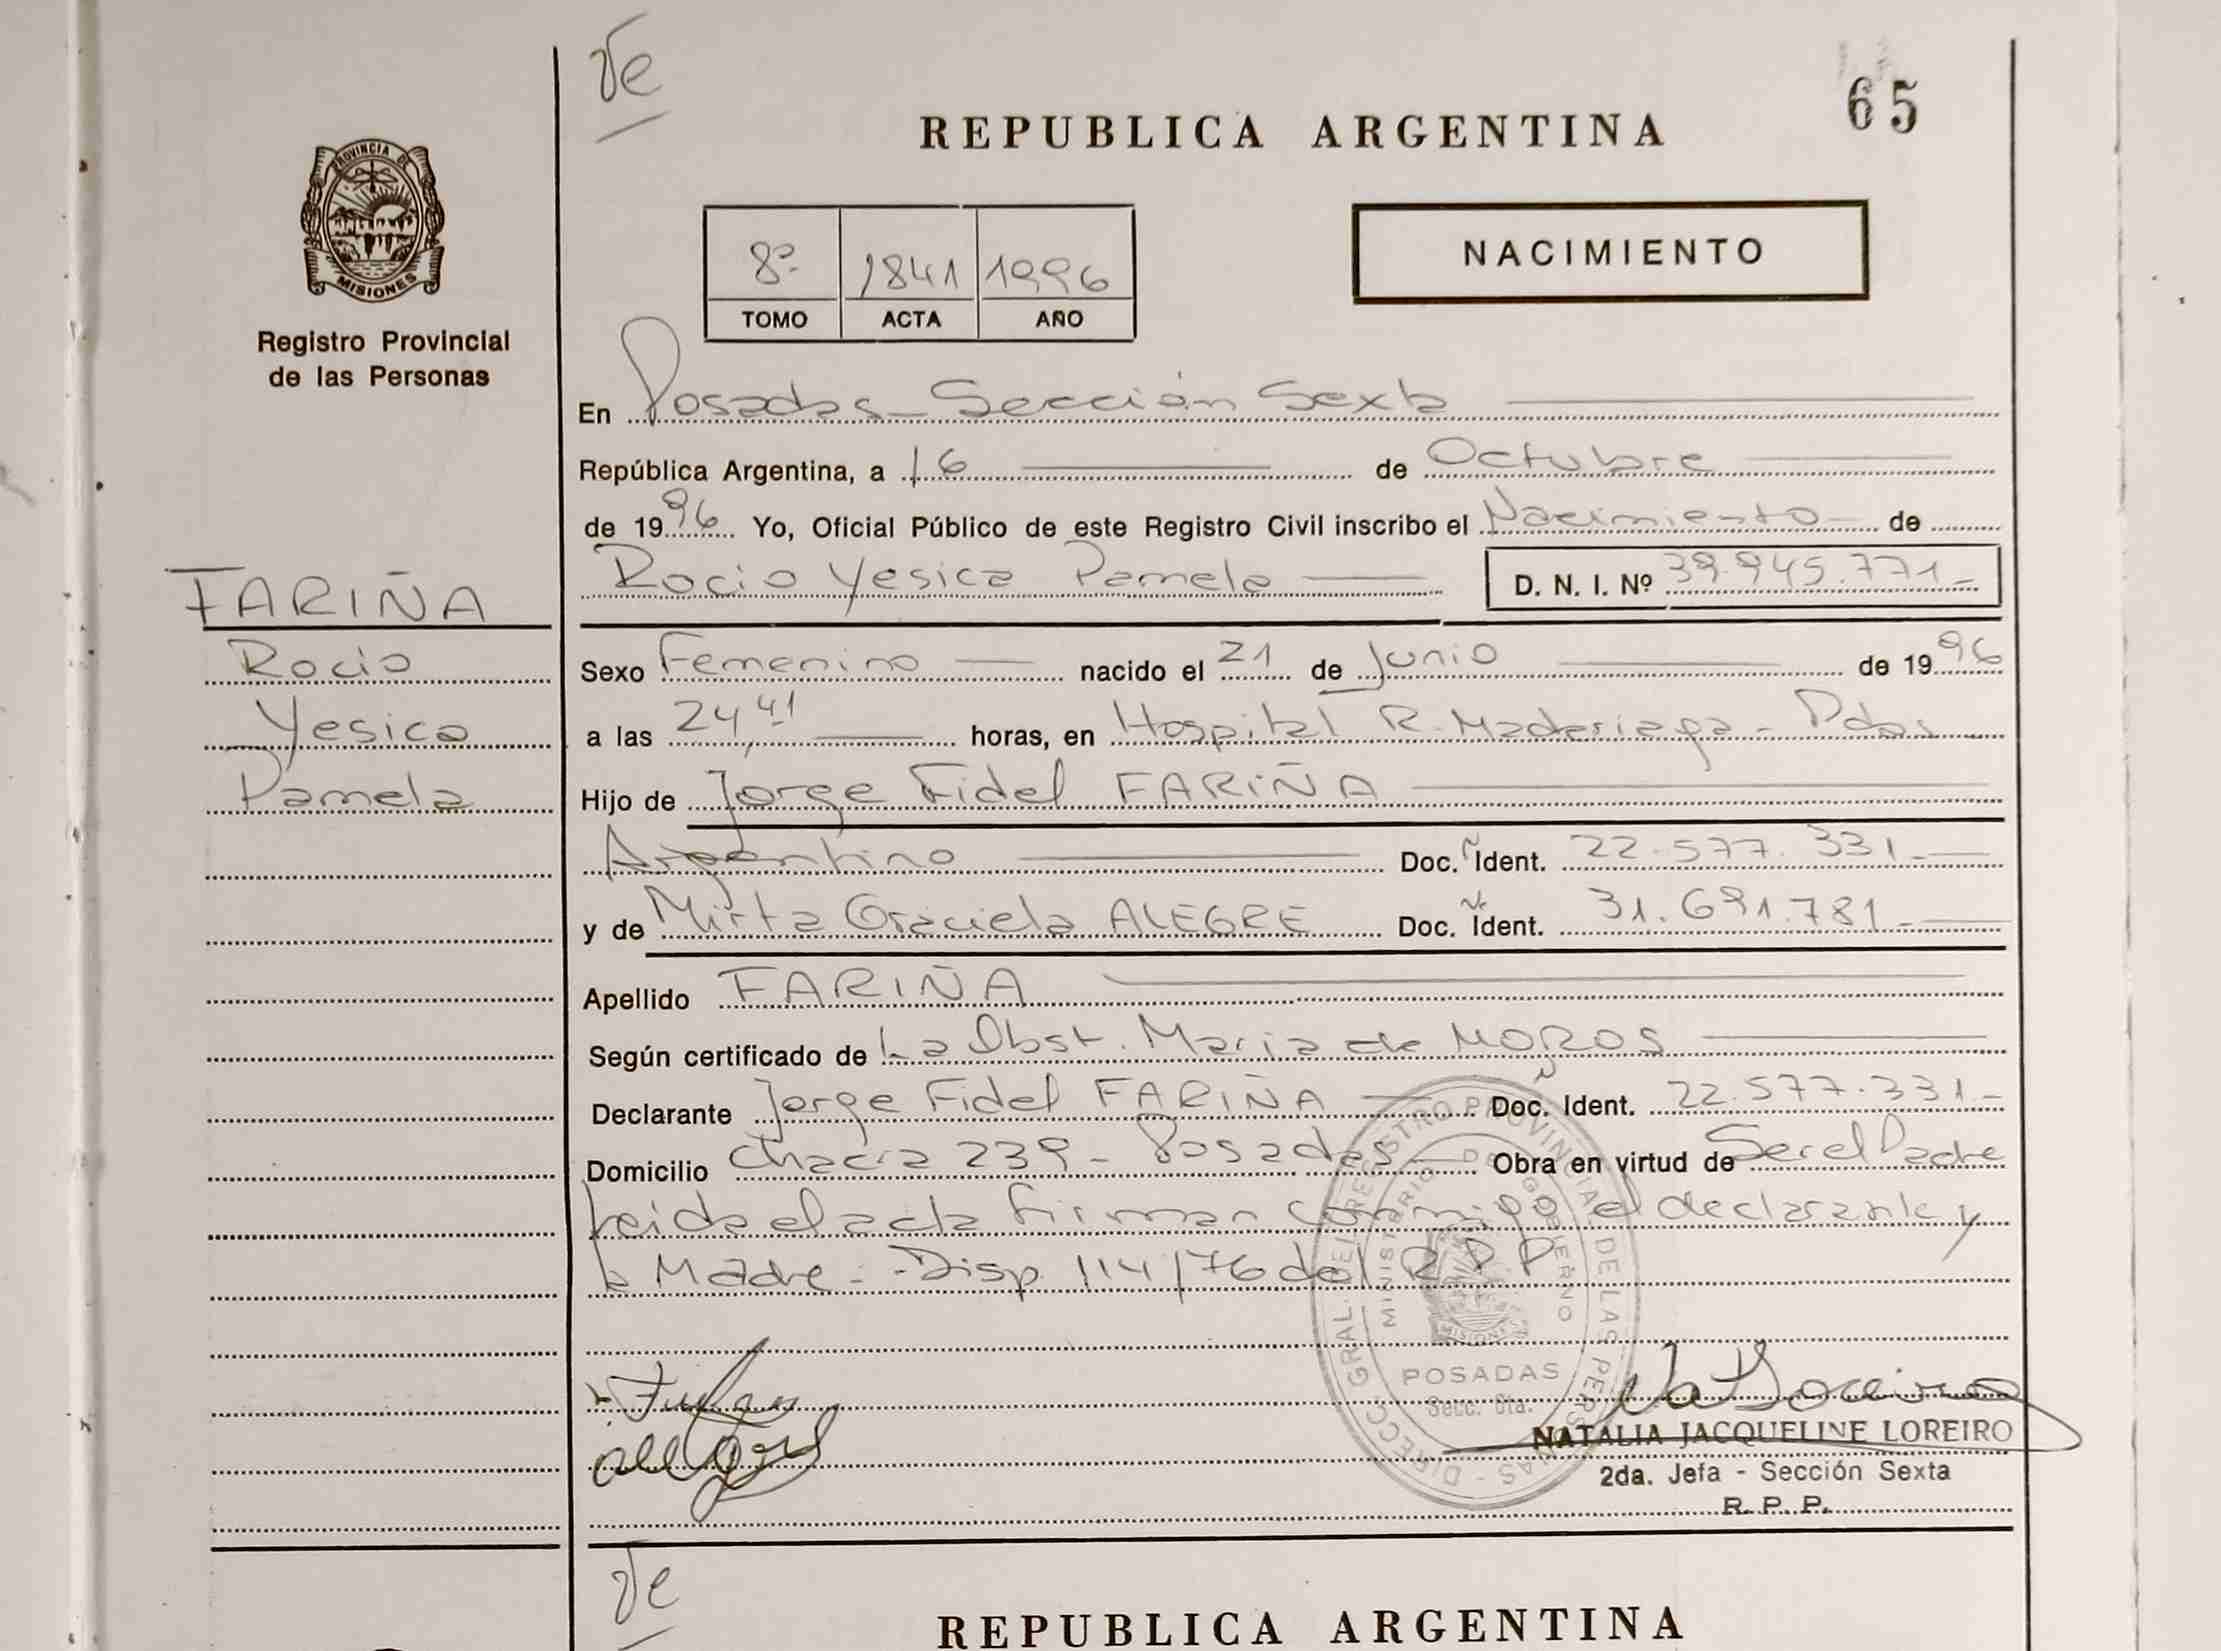 Ve
REPUBLICA ARGENTINA
65
PROVINCIA DE
MISIONES
Registro Provincial
de las Personas
8º
1841
1996
TOMO
ACTA
AÑO
NACIMIENTO
En Posadas - Sección Sexta
República Argentina, a 16 de Octubre
de 1996 Yo, Oficial Público de este Registro Civil inscribo el Nacimiento de
FARIÑA
Rocio Yesica Pamela D. N. I. Nº 39.945.771-
Rocio
Sexo Femenino nacido el 21 de Junio de 1996
Yesica
a las 24,41 horas, en Hospital R. Madariaga - Pdas
Pamela
Hijo de Jorge Fidel FARIÑA
Argentino Doc. Ident. 22.577.331-
y de Mirta Graciela ALEGRE Doc. Ident. 31.691.781-
Apellido FARIÑA
Según certificado de La Obst. Maria de MOROS
Declarante Jorge Fidel FARIÑA Doc. Ident. 22.577.331-
Domicilio Chacra 239 - Posadas - Obra en virtud de Ser el Padre
Leida el acta firman conmigo el declarante y
la Madre - Disp. 114/76 del R P P
DIRECC. GRAL. DEL REGISTRO PROVINCIAL DE LAS PERSONAS -
MINISTERIO DE GOBIERNO
MISIONES
POSADAS
Secc. 6ta.
NATALIA JACQUELINE LOREIRO
2da. Jefa - Sección Sexta
R. P. P.
Ve
REPUBLICA ARGENTINA